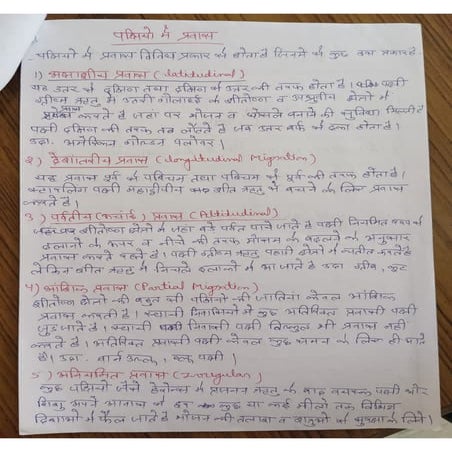 पक्षियों में प्रवास
पक्षियों में प्रवास विभिन्न प्रकार का होता है जिनमें से कुछ इस प्रकार है-
1) अक्षांशीय प्रवास (Latitudinal)
यह उत्तर से दक्षिण तथा दक्षिण से उत्तर की तरफ होता है। पक्षी
ग्रीष्म ऋतु में उत्तरी गोलार्द्ध के शीतोष्ण व क्षेत्रों में
प्रवास करते है जहां पर भोजन व घोंसले बनाने की सुविधा मिलती है
पक्षी दक्षिण की तरफ तब लौटते है जब उत्तर बर्फ से ढका होता है।
उदा. अमेरिकन गोल्डन प्लोवर।
2) देशांतरीय प्रवास (Longitudinal Migration)
यह प्रवास पूर्व से पश्चिम तथा पश्चिम से पूर्व की तरफ होता है।
स्टारलिंग पक्षी महाद्वीपीय शीत ऋतु से बचने के लिए प्रवास
करते है।
3) पर्वतीय (ऊंचाई) प्रवास (Altitudinal)
शीतोष्ण क्षेत्रों में जहां बड़े पर्वत पाये जाते है पक्षी नियमित रूप से
ढलानों के ऊपर व नीचे की तरफ मौसम के बदलने के अनुसार
प्रवास करते रहते है। पक्षी ग्रीष्म ऋतु पहाड़ी क्षेत्रों में व्यतीत करते है
लेकिन शीत ऋतु में निचले ढलानों में आ जाते है उदा. ग्रीब, कूट
4) आंशिक प्रवास (Partial Migration)
शीतोष्ण क्षेत्रों की बहुत सी पक्षियों की जातियां केवल आंशिक
प्रवास करती है। स्थायी निवासियों में कुछ अतिरिक्त प्रवासी पक्षी
जुड़ जाते है। स्थायी निवासी पक्षी बिल्कुल भी प्रवास नहीं
करते है। अतिरिक्त प्रवासी पक्षी केवल कुछ समय के लिए ही पाये
है। उदा. बार्न उल्लू, ब्लू पक्षी।
5) अनियमित प्रवास (Irregular)
कुछ पक्षियों जैसे हेरोन्स में प्रजनन ऋतु के बाद वयस्क पक्षी और
शिशु अपने आवास से कुछ या कई मीलों तक विभिन्न
दिशाओं में फैल जाते है भोजन की तलाश व शत्रुओं से सुरक्षा के लिये।